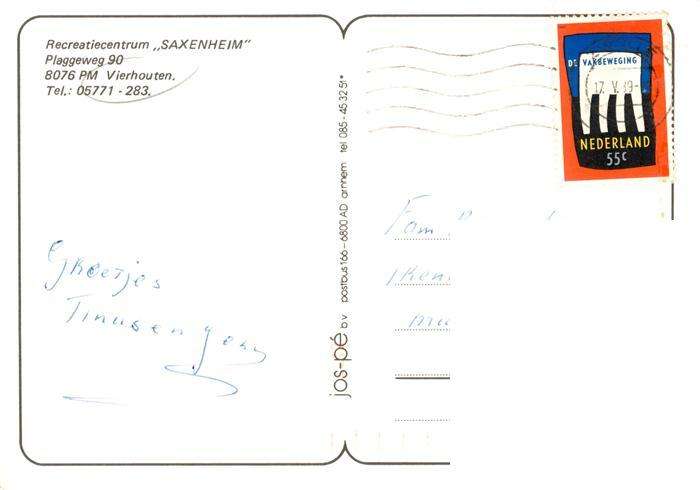 Recreatiecentrum „SAXENHEIM”
Plaggeweg 90
8076 PM Vierhouten.
Tel.: 05771 - 283.
Groetjes
Tinus en
jos-pé b.v. postbus 166 - 6800 AD arnhem tel 085-453251*
DE VAKBEWEGING
17. V. 89
NEDERLAND
55c
Fam